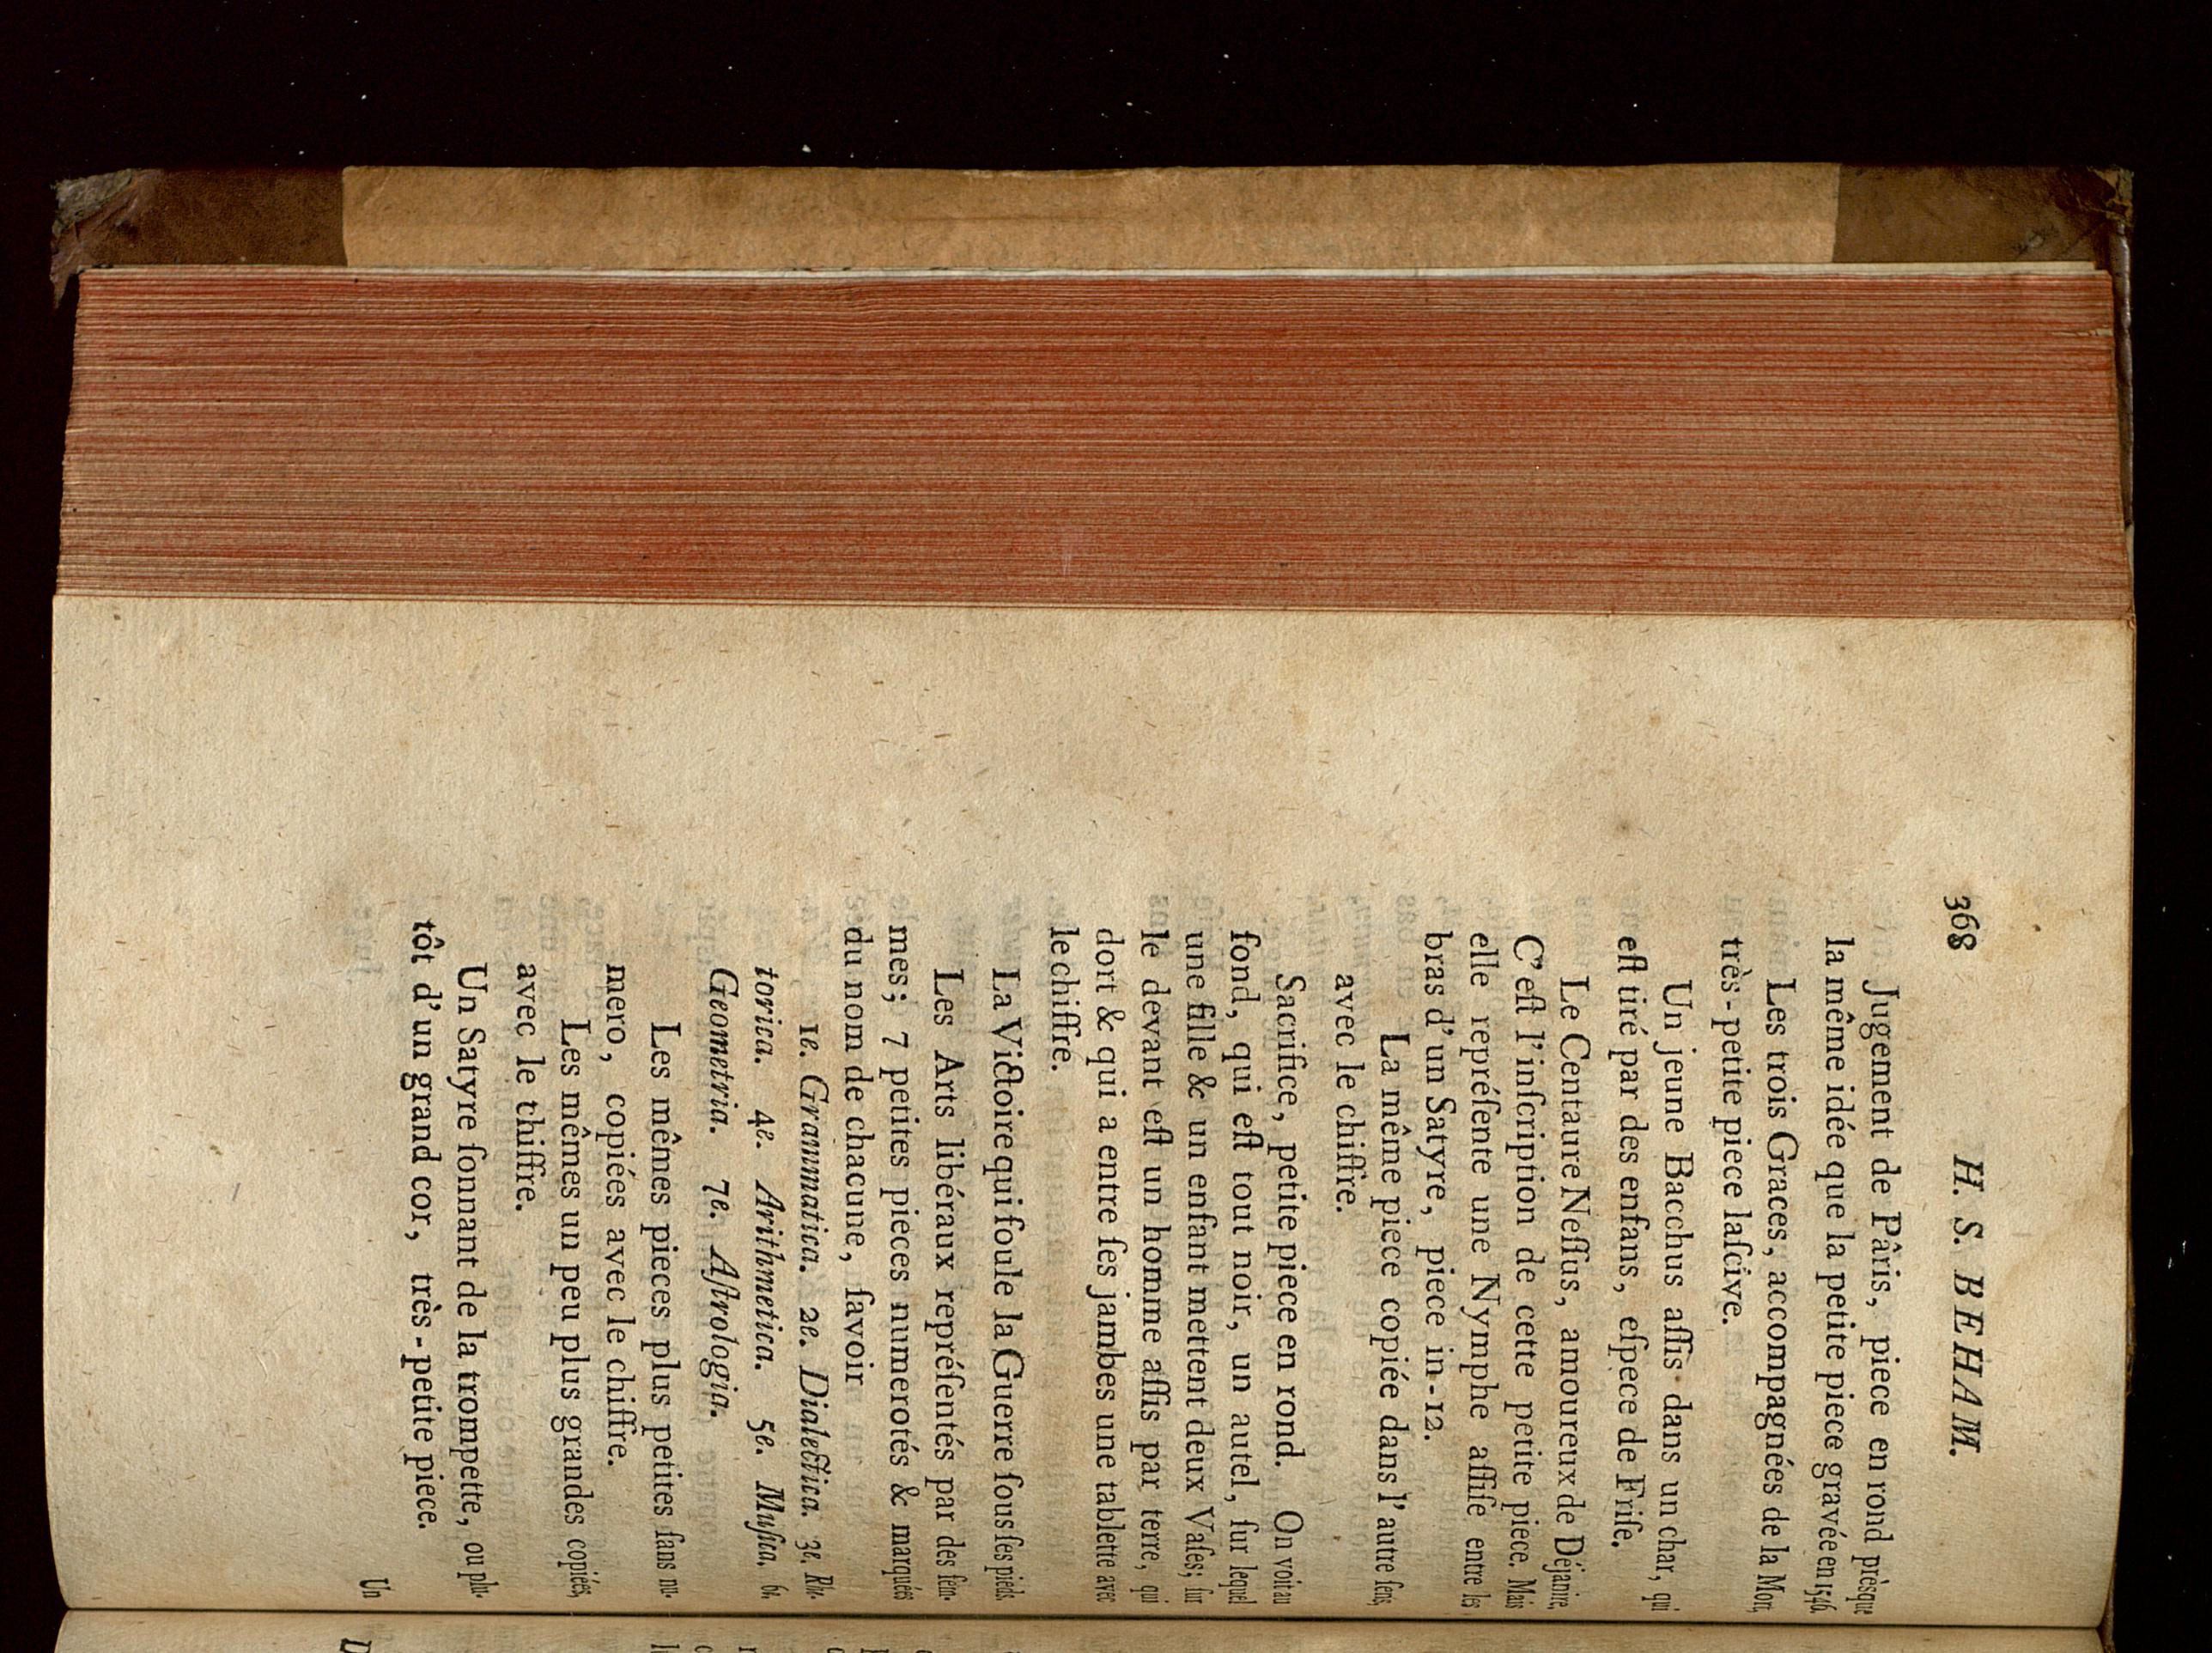 368 H. S. BEHAM.
Jugement de Pâris, piece en rond prèsque
la même idée que la petite piece gravée en 1546.
Les trois Graces, accompagnées de la Mort,
très-petite piece laſcive.
Un jeune Bacchus aſſis dans un char, qui
eſt tiré par des enfans, eſpece de Friſe.
Le Centaure Neſſus, amoureux de Déjanire,
C'eſt l'inſcription de cette petite piece. Mais
elle repréſente une Nymphe aſſiſe entre les
bras d'un Satyre, piece in-12.
La même piece copiée dans l'autre ſens,
avec le chiffre.
Sacrifice, petite piece en rond. On voit au
fond, qui eſt tout noir, un autel, ſur lequel
une fille & un enfant mettent deux Vaſes; ſur
le devant eſt un homme aſſis par terre, qui
dort & qui a entre ſes jambes une tablette avec
le chiffre.
La Victoire qui foule la Guerre ſous ſes pieds.
Les Arts libéraux repréſentés par des fem-
mes; 7 petites pieces numerotés & marquées
du nom de chacune, ſavoir
1e. Grammatica. 2e. Dialectica. 3e. Rhe-
torica. 4e. Arithmetica. 5e. Muſica. 6e.
Geometria. 7e. Aſtrologia.
Les mêmes pieces plus petites ſans nu-
mero, copiées avec le chiffre.
Les mêmes un peu plus grandes copiées,
avec le thiffre.
Un Satyre ſonnant de la trompette, ou plu-
tôt d'un grand cor, très-petite piece.
Un